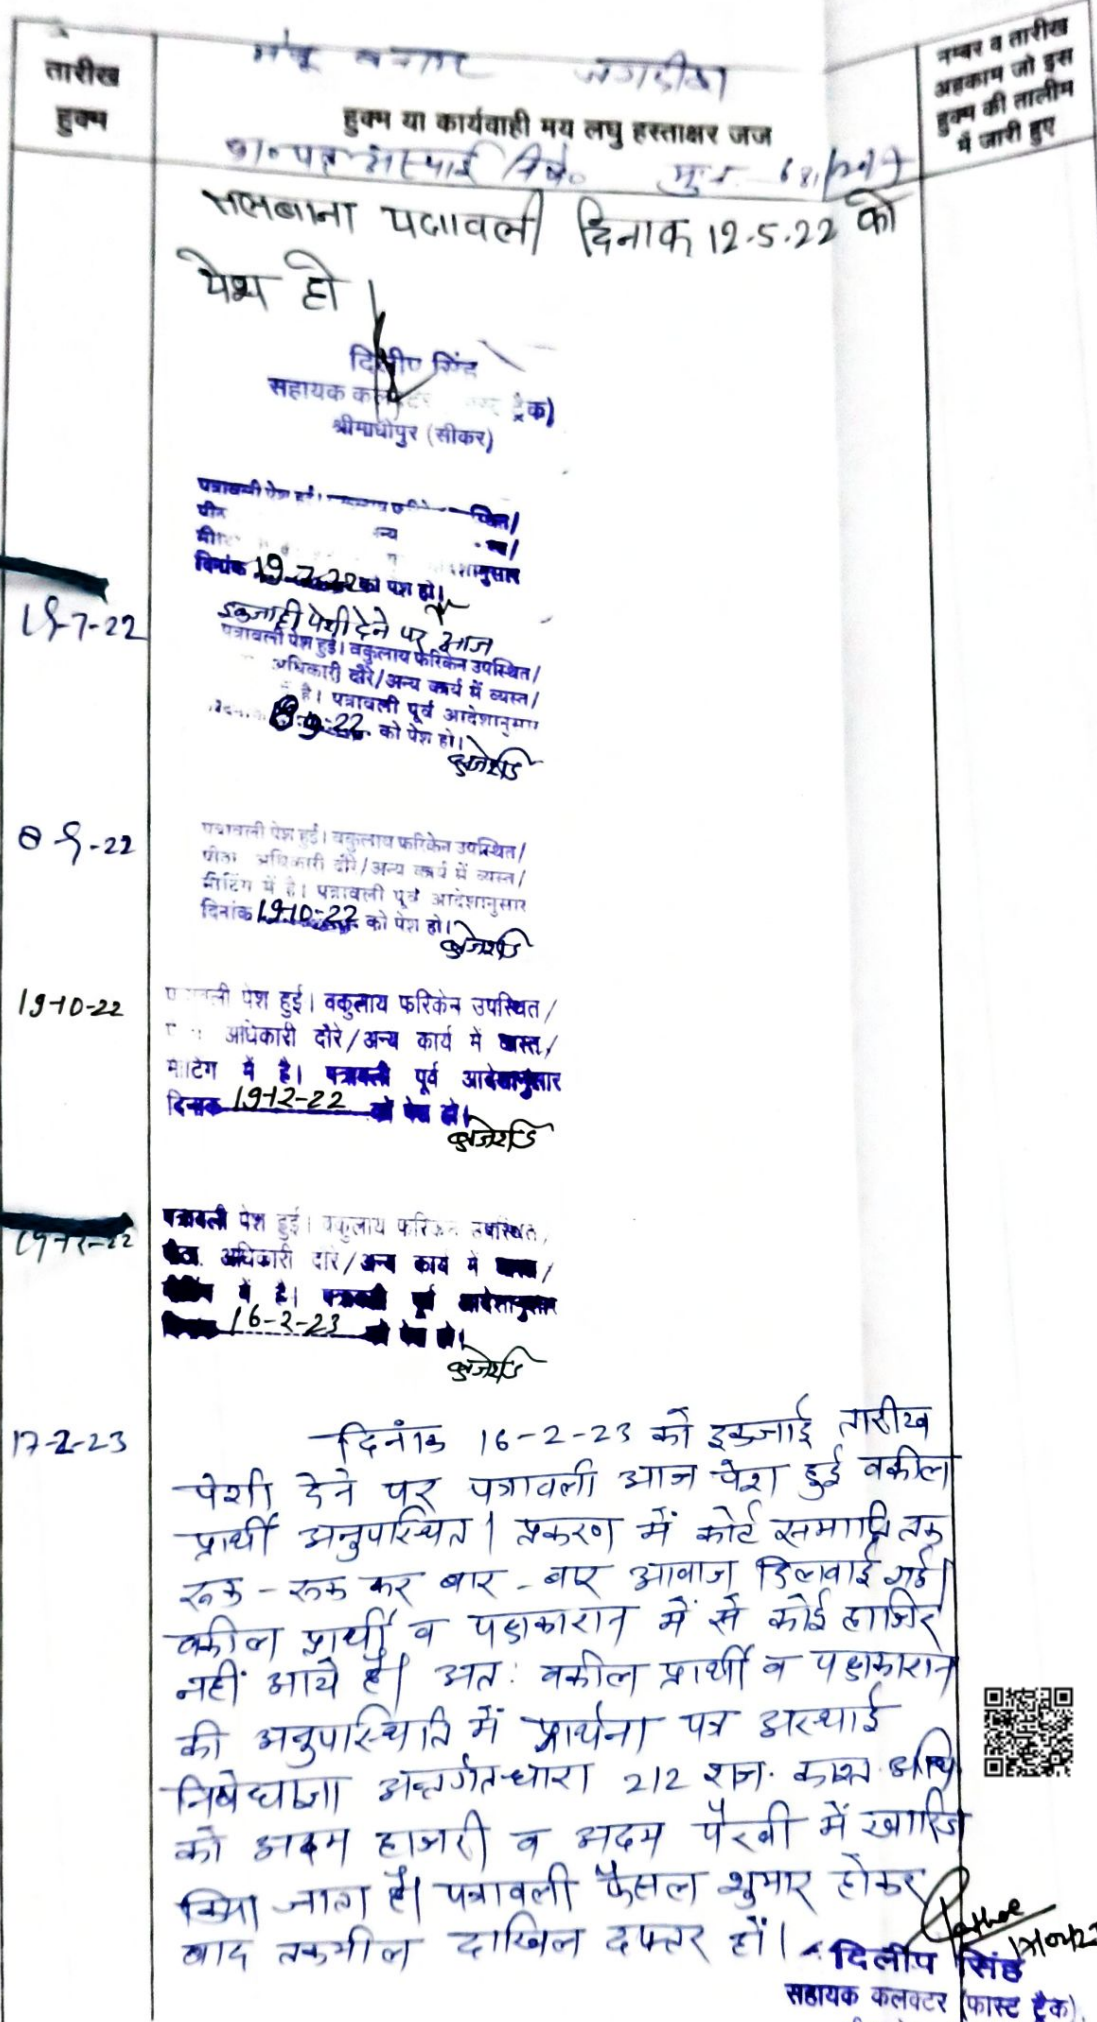 तारीख
हुक्म
बनाम
हुक्म या कार्यवाही मय लघु हस्ताक्षर जज
नम्बर व तारीख
अहकाम जो इस
हुक्म की तालीम
में जारी हुए
तलबाना पत्रावली दिनांक 12.5.22 को
पेश हो।
दिलीप सिंह
सहायक कलक्टर ट्रैक)
श्रीमाधोपुर (सीकर)
पत्रावली पेश हुई।
अन्य
दिनांक 19-7-22 को पेश हो।
19-7-22
इकजाई पेशी देने पर आज
पत्रावली पेश हुई। वकुलाय फरिकेन उपस्थित/
अधिकारी दौरे/अन्य कार्य में व्यस्त/
है। पत्रावली पूर्व आदेशानुसार
8-9-22 को पेश हो।
8-9-22
पत्रावली पेश हुई। वकुलाय फरिकेन उपस्थित/
पीठा अधिकारी दौरे/अन्य कार्य में व्यस्त/
मीटिंग में है। पत्रावली पूर्व आदेशानुसार
दिनांक 19-10-22 को पेश हो।
19-10-22
पत्रावली पेश हुई। वकुलाय फरिकेन उपस्थित/
अधिकारी दौरे/अन्य कार्य में व्यस्त/
मीटिंग में है। पत्रावली पूर्व आदेशानुसार
दिनांक 19-12-22 को पेश हो।
19-12-22
पत्रावली पेश हुई। वकुलाय फरिकेन उपस्थित,
पीठा. अधिकारी दौरे/अन्य कार्य में व्यस्त/
मीटिंग में है। पत्रावली पूर्व आदेशानुसार
दिनांक 16-2-23 को पेश हो।
17-2-23
दिनांक 16-2-23 को इकजाई तारीख
पेशी देने पर पत्रावली आज पेश हुई वकील
प्रार्थी अनुपस्थित। प्रकरण में कोर्ट समाप्ति तक
रूक-रूक कर बार-बार आवाज दिलवाई गई।
वकील प्रार्थी व पक्षकारान में से कोई हाजिर
नहीं आये है। अत: वकील प्रार्थी व पक्षकारान
की अनुपस्थिति में प्रार्थना पत्र अस्थाई
निषेधाज्ञा अन्तर्गत धारा 212 राज. काश्त. अधि
को अदम हाजरी व अदम पैरवी में खारिज
किया जाता है। पत्रावली फैसल शुमार होकर
बाद तकमील दाखिल दफ्तर हों।
दिलीप सिंह
सहायक कलक्टर (फास्ट ट्रैक)